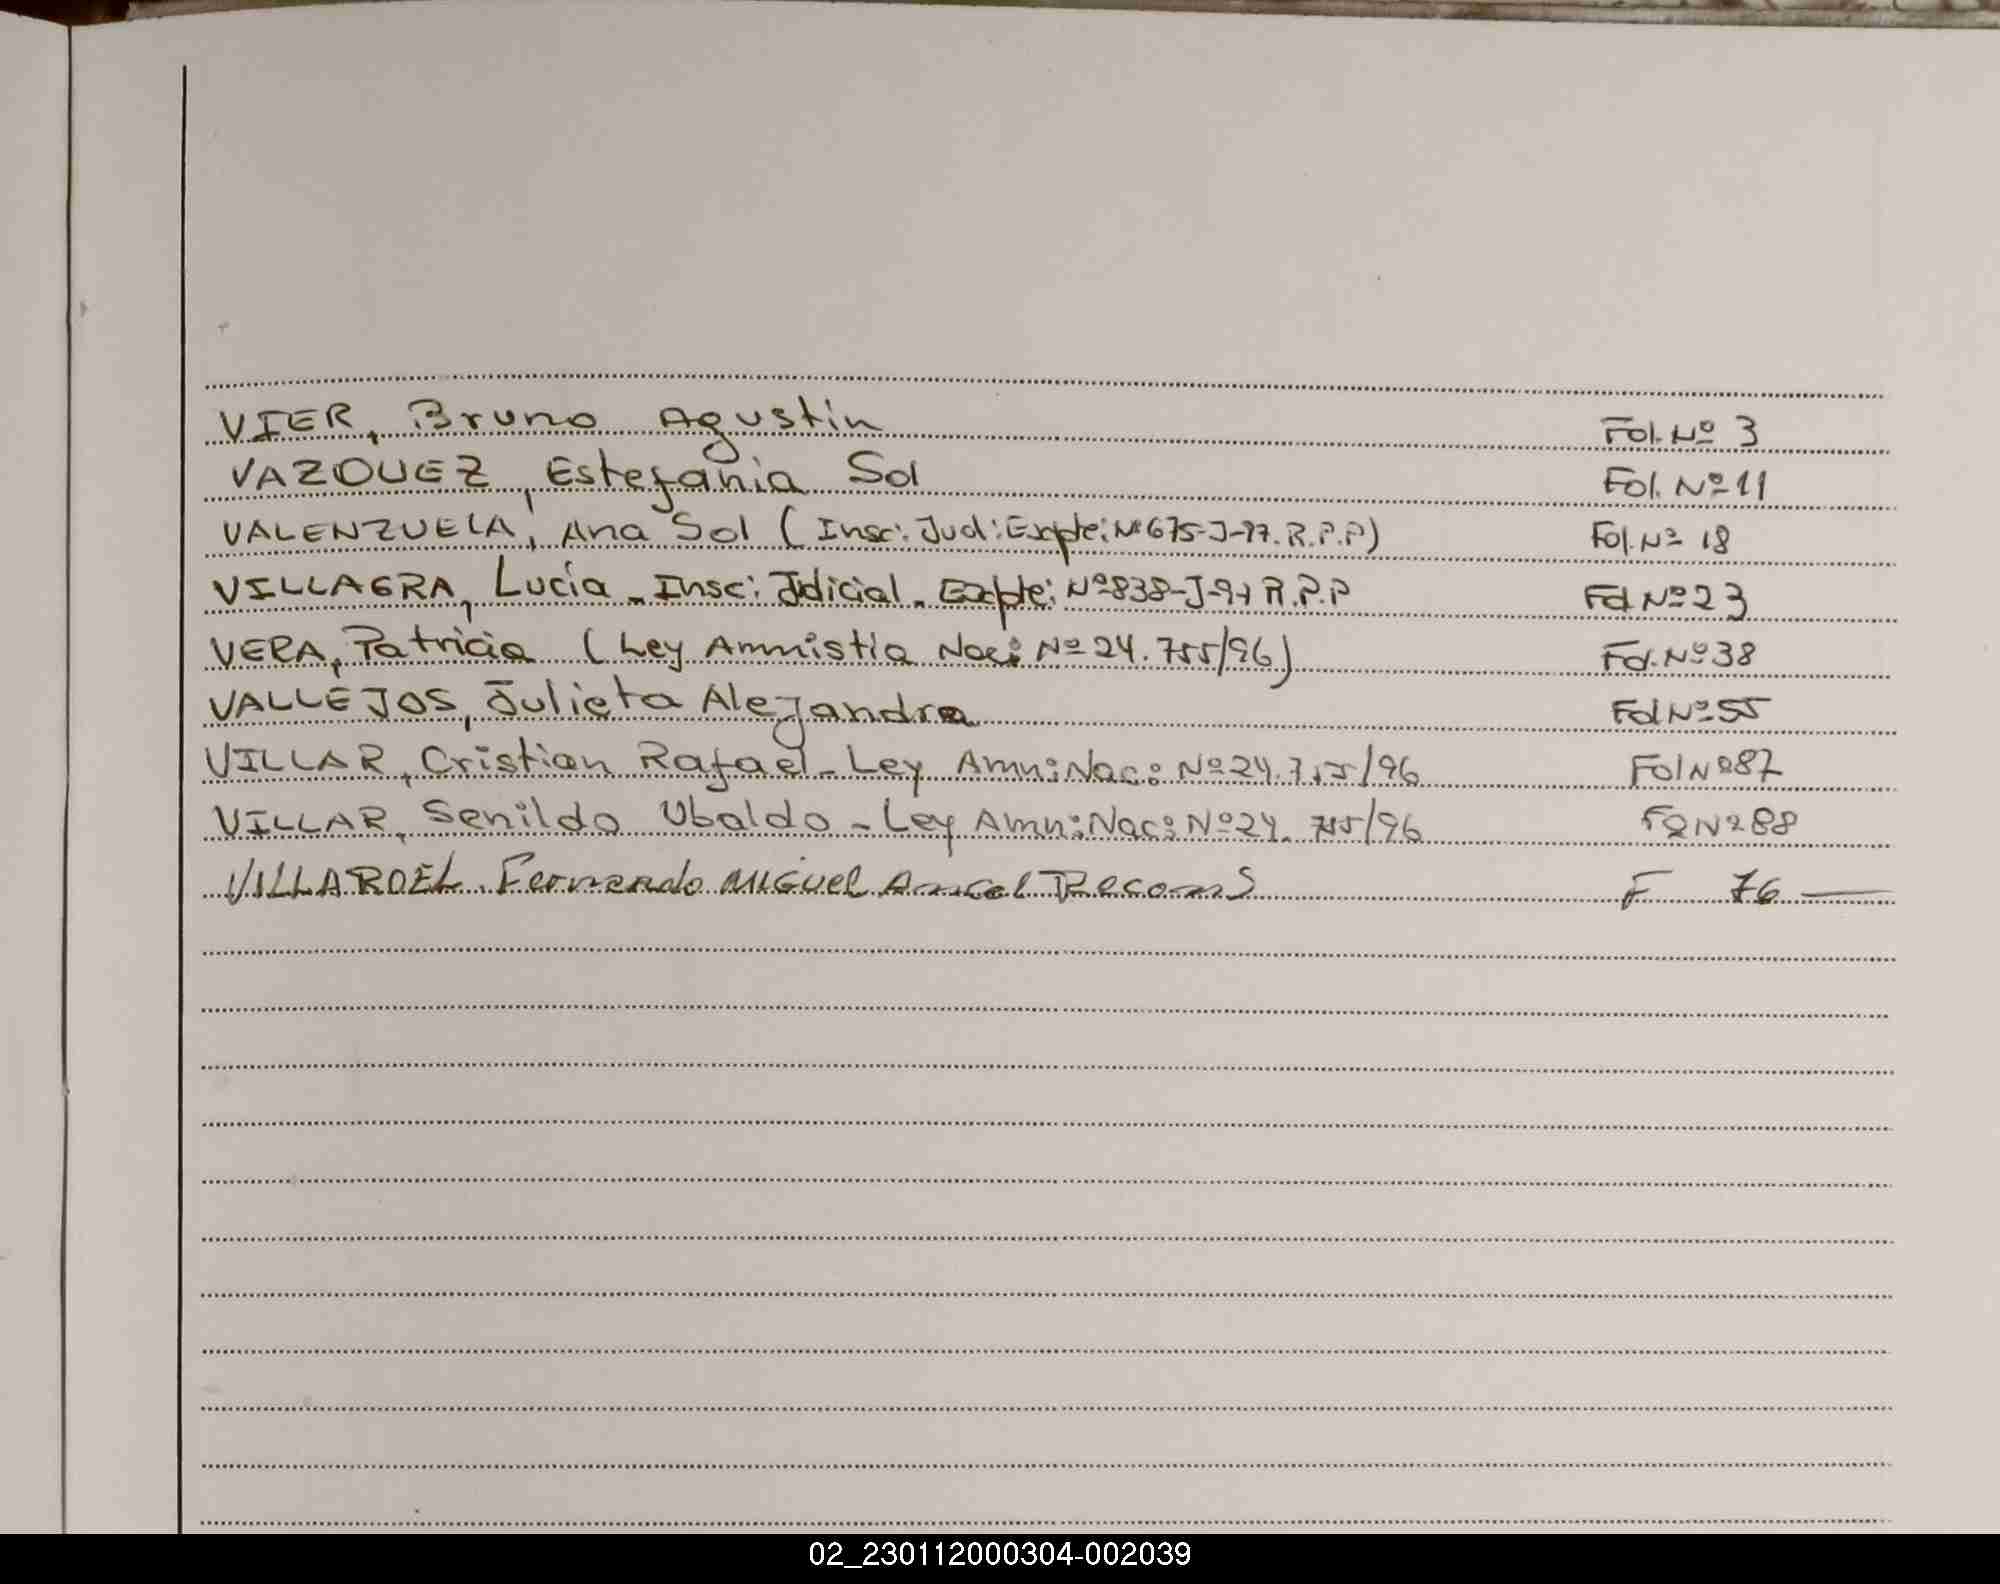 VIER, Bruno Agustin Fol. Nº 3
VAZQUEZ, Estefania Sol Fol. Nº 11
VALENZUELA, Ana Sol (Insc: Jud: Expte: Nº 675-J-97. R.P.P) Fol. Nº 18
VILLAGRA, Lucía - Insc: Jdicial - Expte: Nº 838-J-97 R.P.P Fol Nº 23
VERA, Patricia (Ley Amnistia Nac: Nº 24.755/96) Fol. Nº 38
VALLEJOS, Julieta Alejandra Fol Nº 55
VILLAR, Cristian Rafael - Ley Amn: Nac: Nº 24.755/96 Fol Nº 87
VILLAR, Senildo Ubaldo - Ley Amn: Nac: Nº 24.755/96 Fol Nº 88
VILLAROEL. Fernando Miguel Angel F 76
02_230112000304-002039